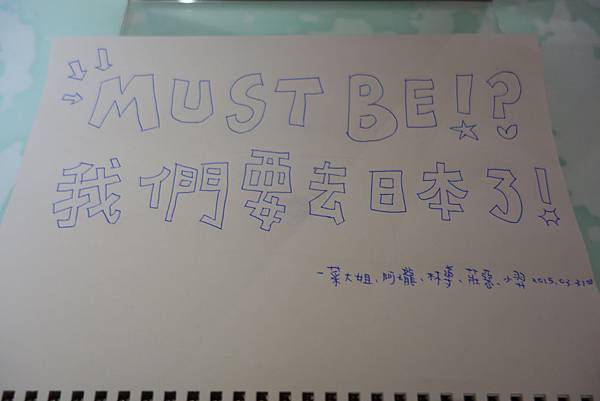 MUST BE!?
我們要去日本了!
菜大姐、阿瓏、林夢、莊晏、小羿 2015.03.31